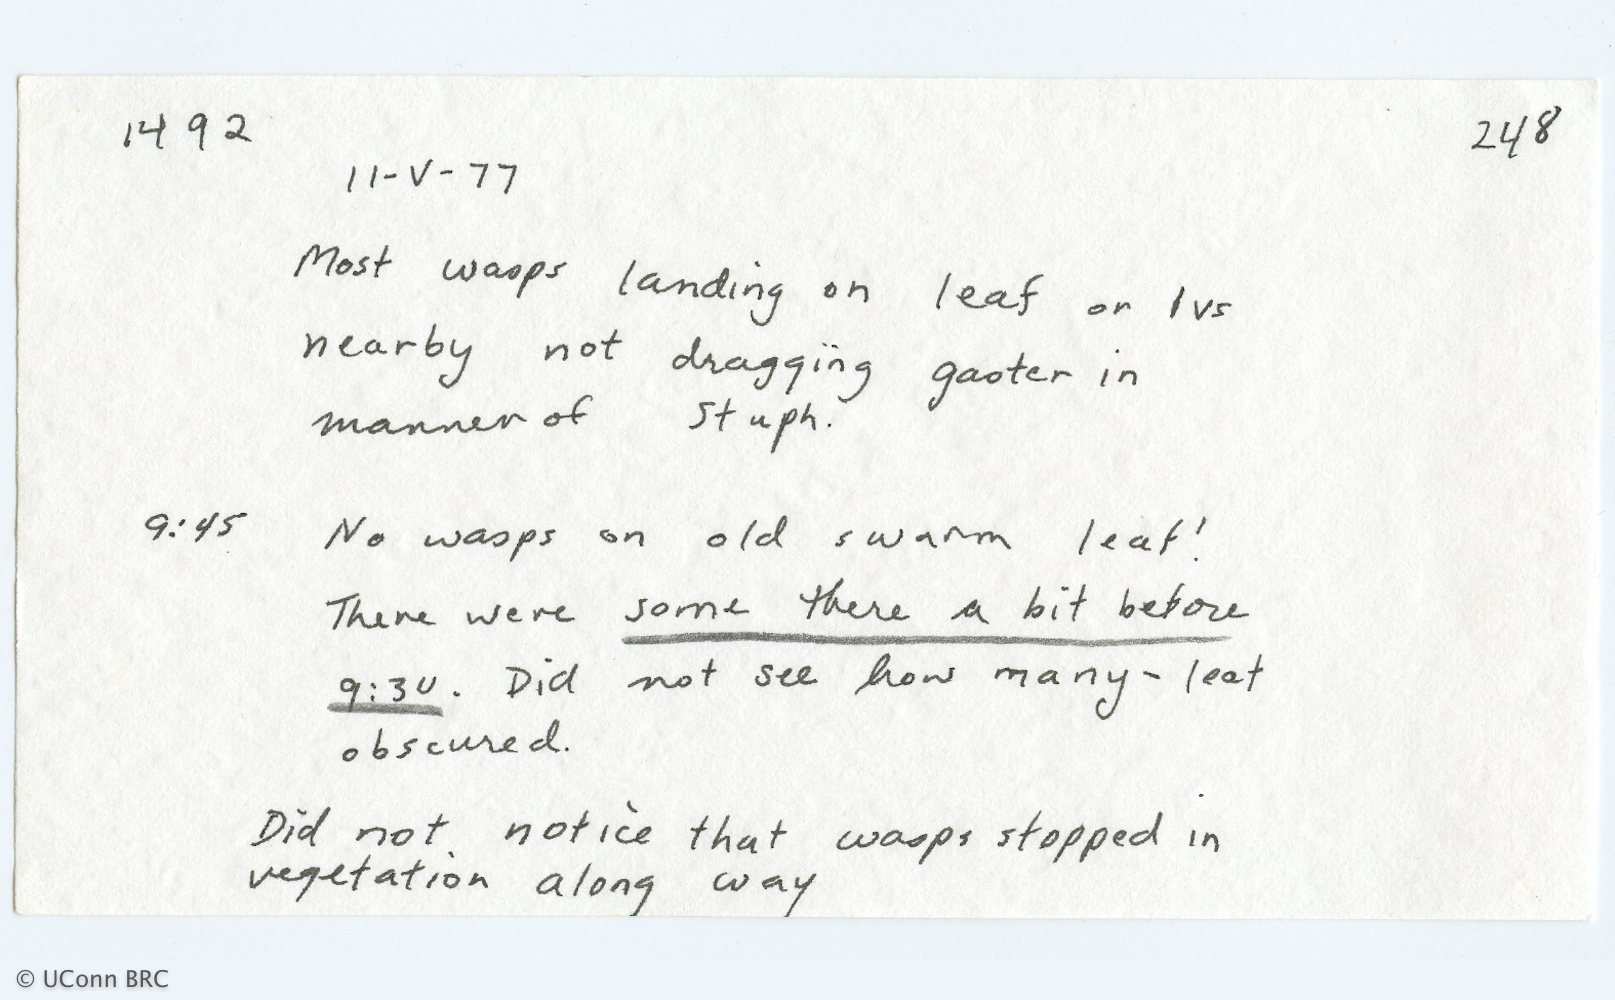 1492
248
11-V-77
Most wasps landing on leaf or lvs
nearby not dragging gaster in
manner of Stuph.
9:45 No wasps on old swarm leaf!
There were some there a bit before
9:30. Did not see how many - leaf
obscured.
Did not notice that wasps stopped in
vegetation along way
© UConn BRC